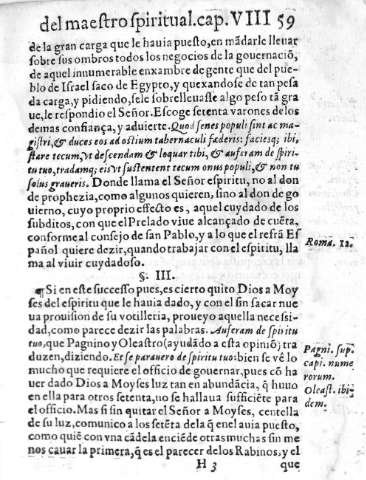 del maestro spiritual. cap. VIII 59
de la gran carga que le hauia puesto, en mãdarle lleuar
sobre sus ombros todos los negocios de la gouernaciõ,
de aquel innumerable enxambre de gente que del pue-
blo de Israel saco de Egypto, y quexandose de tan pesa
da carga, y pidiendo, se le sobrelleuasse algo peso tã gra
ue, le respondio el Señor. Escoge setenta varones de los
de mas confiança, y aduierte. Quod senes populi sint ac ma-
gistri, & duces eos ad ostium tabernaculi fœderis: faciesq; ibi,
stare tecum, vt descendam & loquar tibi, & auferam de spiri-
tu tuo, tradamq; eis vt sustentent tecum onus populi, & non tu
solus graueris. Donde llama el Señor espiritu, no al don
de prophezia, como algunos quieren, sino al don de go
uierno, cuyo proprio effecto es, aquel cuydado de los
subditos, con que el Prelado viue alcançado de cuẽta,
conforme al consejo de san Pablo, y a lo que el refrã Es
pañol quiere dezir, quando trabajar con el espiritu, lla
ma al viuir cuydadoso.
Roma. 12.
§. III.
¶ Si en este successo pues, es cierto quito Dios a Moy
ses del espiritu que le hauia dado, y con el sin sacar nue
ua prouision de su votilleria, proueyo aquella necessi-
dad, como parece dezir las palabras. Auferam de spiritu
tuo, que Pagnino y Oleastro (ayudãdo a esta opiniõ) tra
duzen, diziendo. Et separauero de spiritu tuo: bien se vè lo
mucho que requiere el officio de gouernar, pues cõ ha
uer dado Dios a Moyses luz tan en abundãcia, q̃ huuo
en ella para otros setenta, no se hallaua sufficiẽte para
el officio. Mas si sin quitar el Señor a Moyses, centella
de su luz, comunico a los setẽta de la q̃ en el auia puesto,
como quiẽ con vna cãdela enciẽde otras muchas sin me
nos cauar la primera, q̃ es el parecer de los Rabinos, y el
Pagni. sup.
capi. nume
rorum.
Oleast. ibi-
dem.
H 3 que